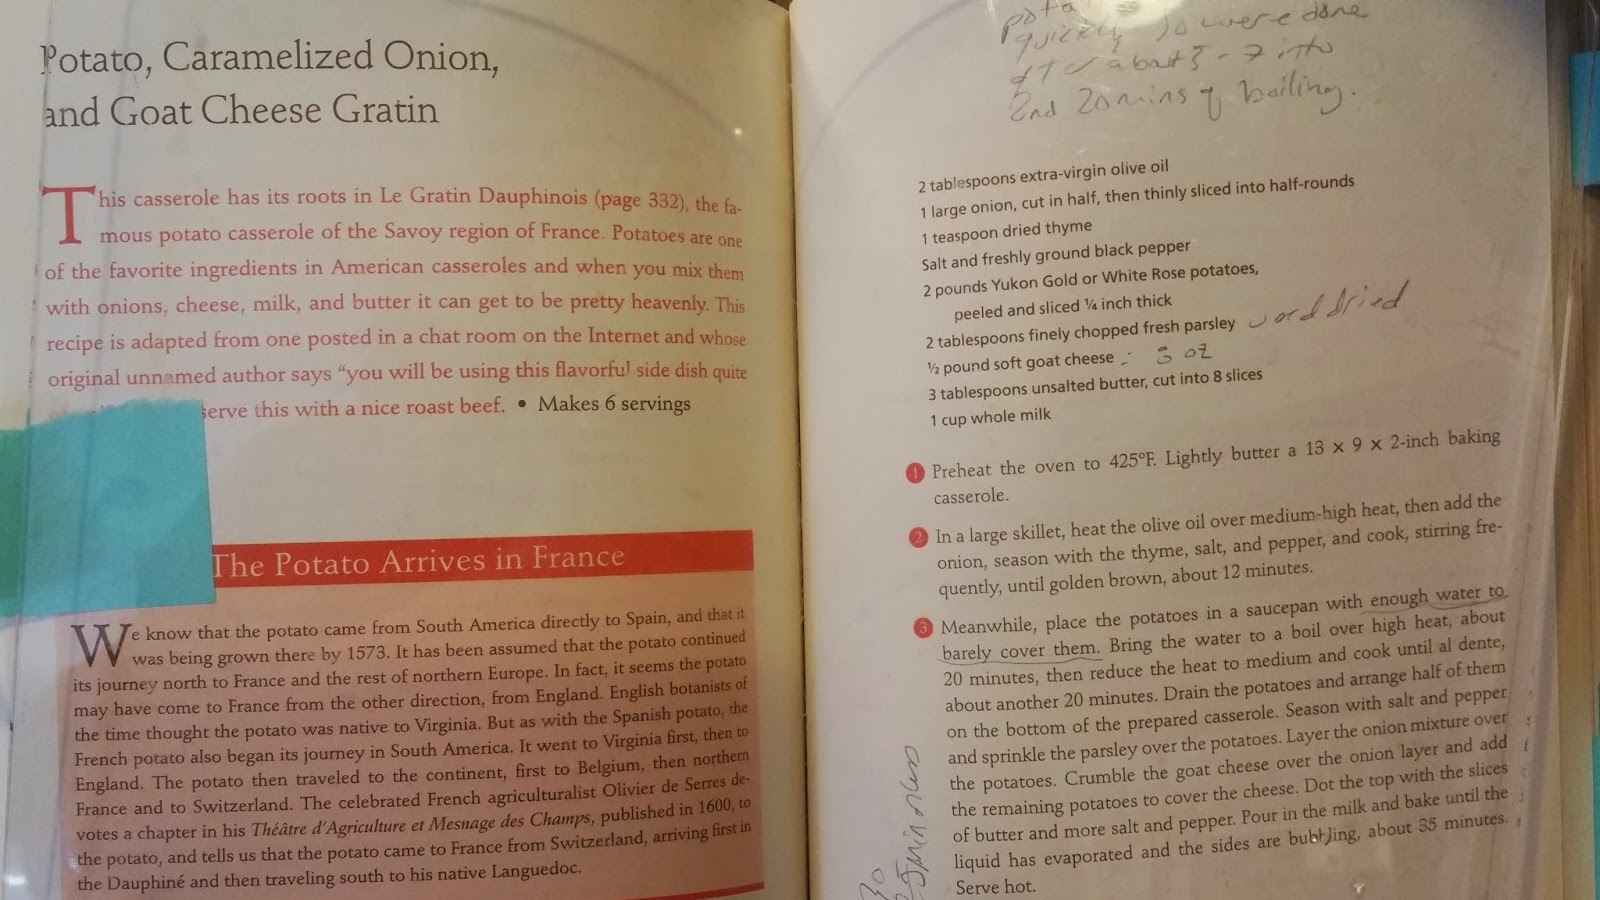 Potato, Caramelized Onion,
and Goat Cheese Gratin
This casserole has its roots in Le Gratin Dauphinois (page 332), the fa-
mous potato casserole of the Savoy region of France. Potatoes are one
of the favorite ingredients in American casseroles and when you mix them
with onions, cheese, milk, and butter it can get to be pretty heavenly. This
recipe is adapted from one posted in a chat room on the Internet and whose
original unnamed author says “you will be using this flavorful side dish quite
serve this with a nice roast beef. • Makes 6 servings
The Potato Arrives in France
We know that the potato came from South America directly to Spain, and that it
was being grown there by 1573. It has been assumed that the potato continued
its journey north to France and the rest of northern Europe. In fact, it seems the potato
may have come to France from the other direction, from England. English botanists of
the time thought the potato was native to Virginia. But as with the Spanish potato, the
French potato also began its journey in South America. It went to Virginia first, then to
England. The potato then traveled to the continent, first to Belgium, then northern
France and to Switzerland. The celebrated French agriculturalist Olivier de Serres de-
votes a chapter in his Théâtre d’Agriculture et Mesnage des Champs, published in 1600, to
the potato, and tells us that the potato came to France from Switzerland, arriving first in
the Dauphiné and then traveling south to his native Languedoc.
quickly so were done
about 5-7 into
2nd 20 mins of boiling.
2 tablespoons extra-virgin olive oil
1 large onion, cut in half, then thinly sliced into half-rounds
1 teaspoon dried thyme
Salt and freshly ground black pepper
2 pounds Yukon Gold or White Rose potatoes,
peeled and sliced ¼ inch thick
2 tablespoons finely chopped fresh parsley used dried
½ pound soft goat cheese = 8 oz
3 tablespoons unsalted butter, cut into 8 slices
1 cup whole milk
1 Preheat the oven to 425°F. Lightly butter a 13 × 9 × 2-inch baking
casserole.
2 In a large skillet, heat the olive oil over medium-high heat, then add the
onion, season with the thyme, salt, and pepper, and cook, stirring fre-
quently, until golden brown, about 12 minutes.
3 Meanwhile, place the potatoes in a saucepan with enough water to
barely cover them. Bring the water to a boil over high heat, about
20 minutes, then reduce the heat to medium and cook until al dente,
about another 20 minutes. Drain the potatoes and arrange half of them
on the bottom of the prepared casserole. Season with salt and pepper
and sprinkle the parsley over the potatoes. Layer the onion mixture over
the potatoes. Crumble the goat cheese over the onion layer and add
the remaining potatoes to cover the cheese. Dot the top with the slices
of butter and more salt and pepper. Pour in the milk and bake until the
liquid has evaporated and the sides are bubbling, about 35 minutes.
Serve hot.